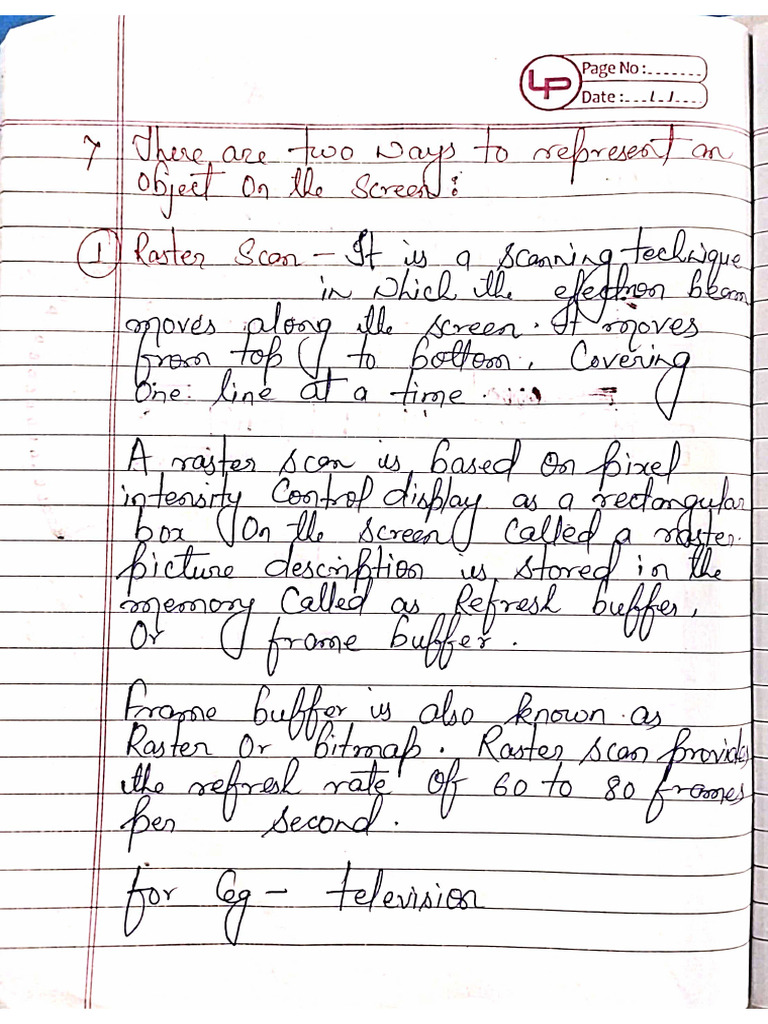 LP
Page No:
Date:
7 There are two ways to represent an
Object on the screen:
① Raster Scan - It is a scanning technique
in which the electron beam
moves along the screen. It moves
from top to bottom, Covering
One line at a time.
A raster scan is based on pixel
intensity Control display as a rectangular
box On the screen called a raster.
picture description is stored in the
memory Called as Refresh buffer,
Or frame buffer.
Frame buffer is also known as
Raster Or bitmap. Raster scan provides
the refresh rate Of 60 to 80 frames
per second.
for eg - television